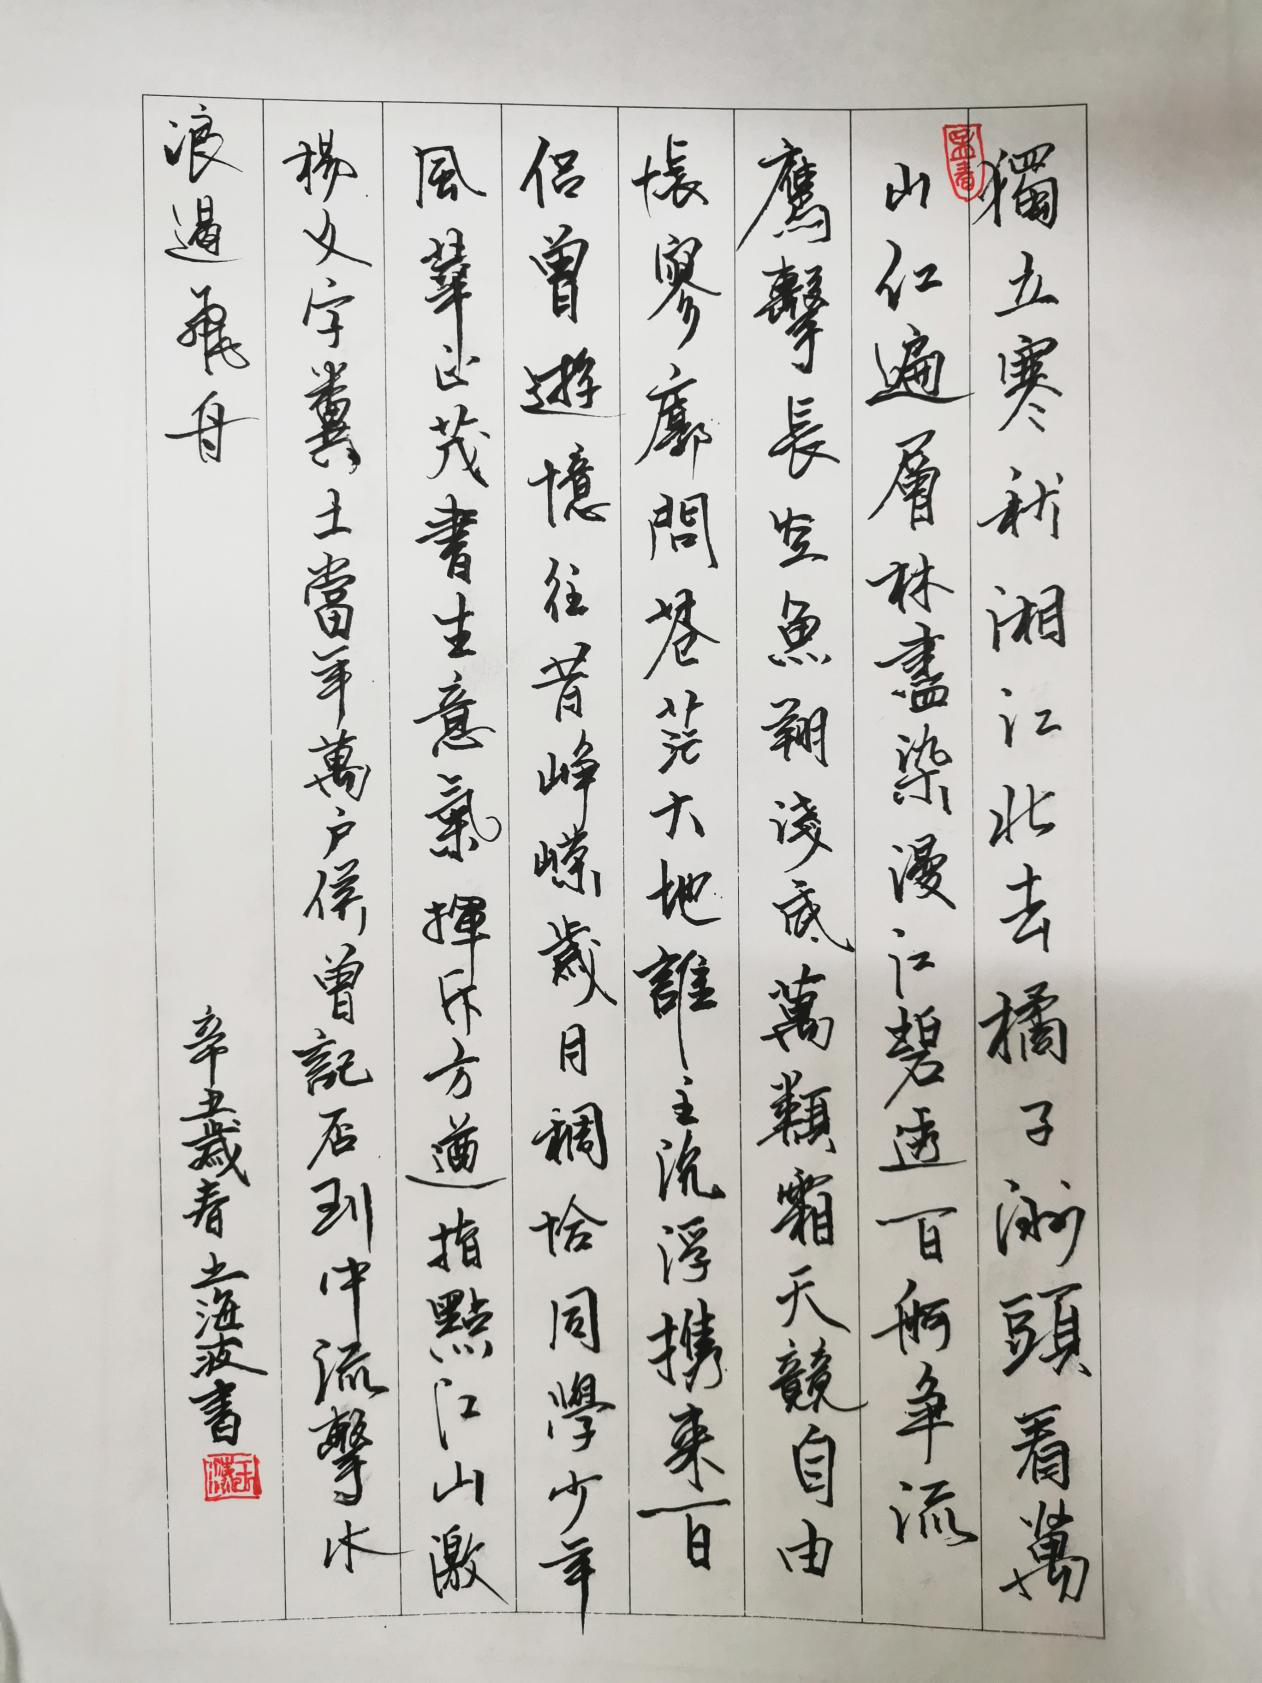 獨立寒秋湘江北去橘子洲頭看萬
山红遍層林盡染漫江碧透百舸争流
鷹擊長空魚翔淺底萬類霜天競自由
悵寥廓問蒼茫大地誰主沉浮携來百
侣曾遊憶往昔崢嶸歲月稠恰同學少年
風華正茂書生意氣揮斥方遒指點江山激
揚文字糞土當年萬户侯曾記否到中流擊水
浪遏飛舟
辛丑歲春王海波書